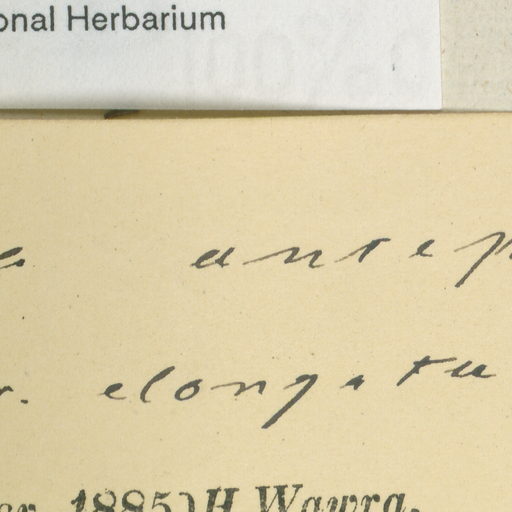 onal Herbarium
antep
r. elongatu
er, 1885) H. Wawra.